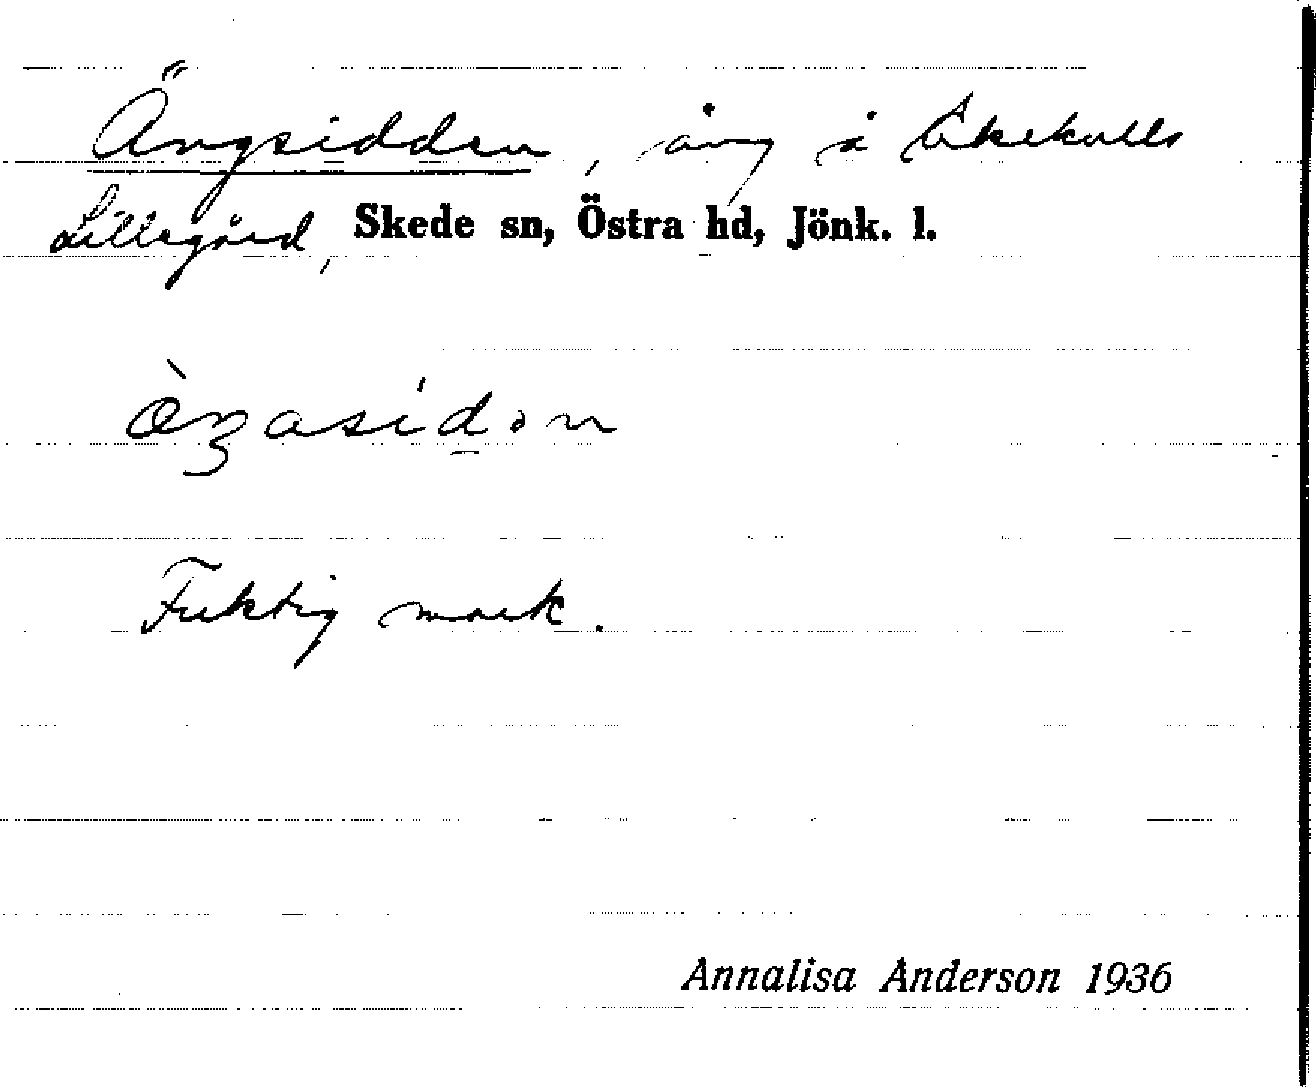 Ängsidden, äng å Åkekulls
Lillegård, Skede sn, Östra hd, Jönk. l.
Fuktig mark.
Annalisa Anderson 1936